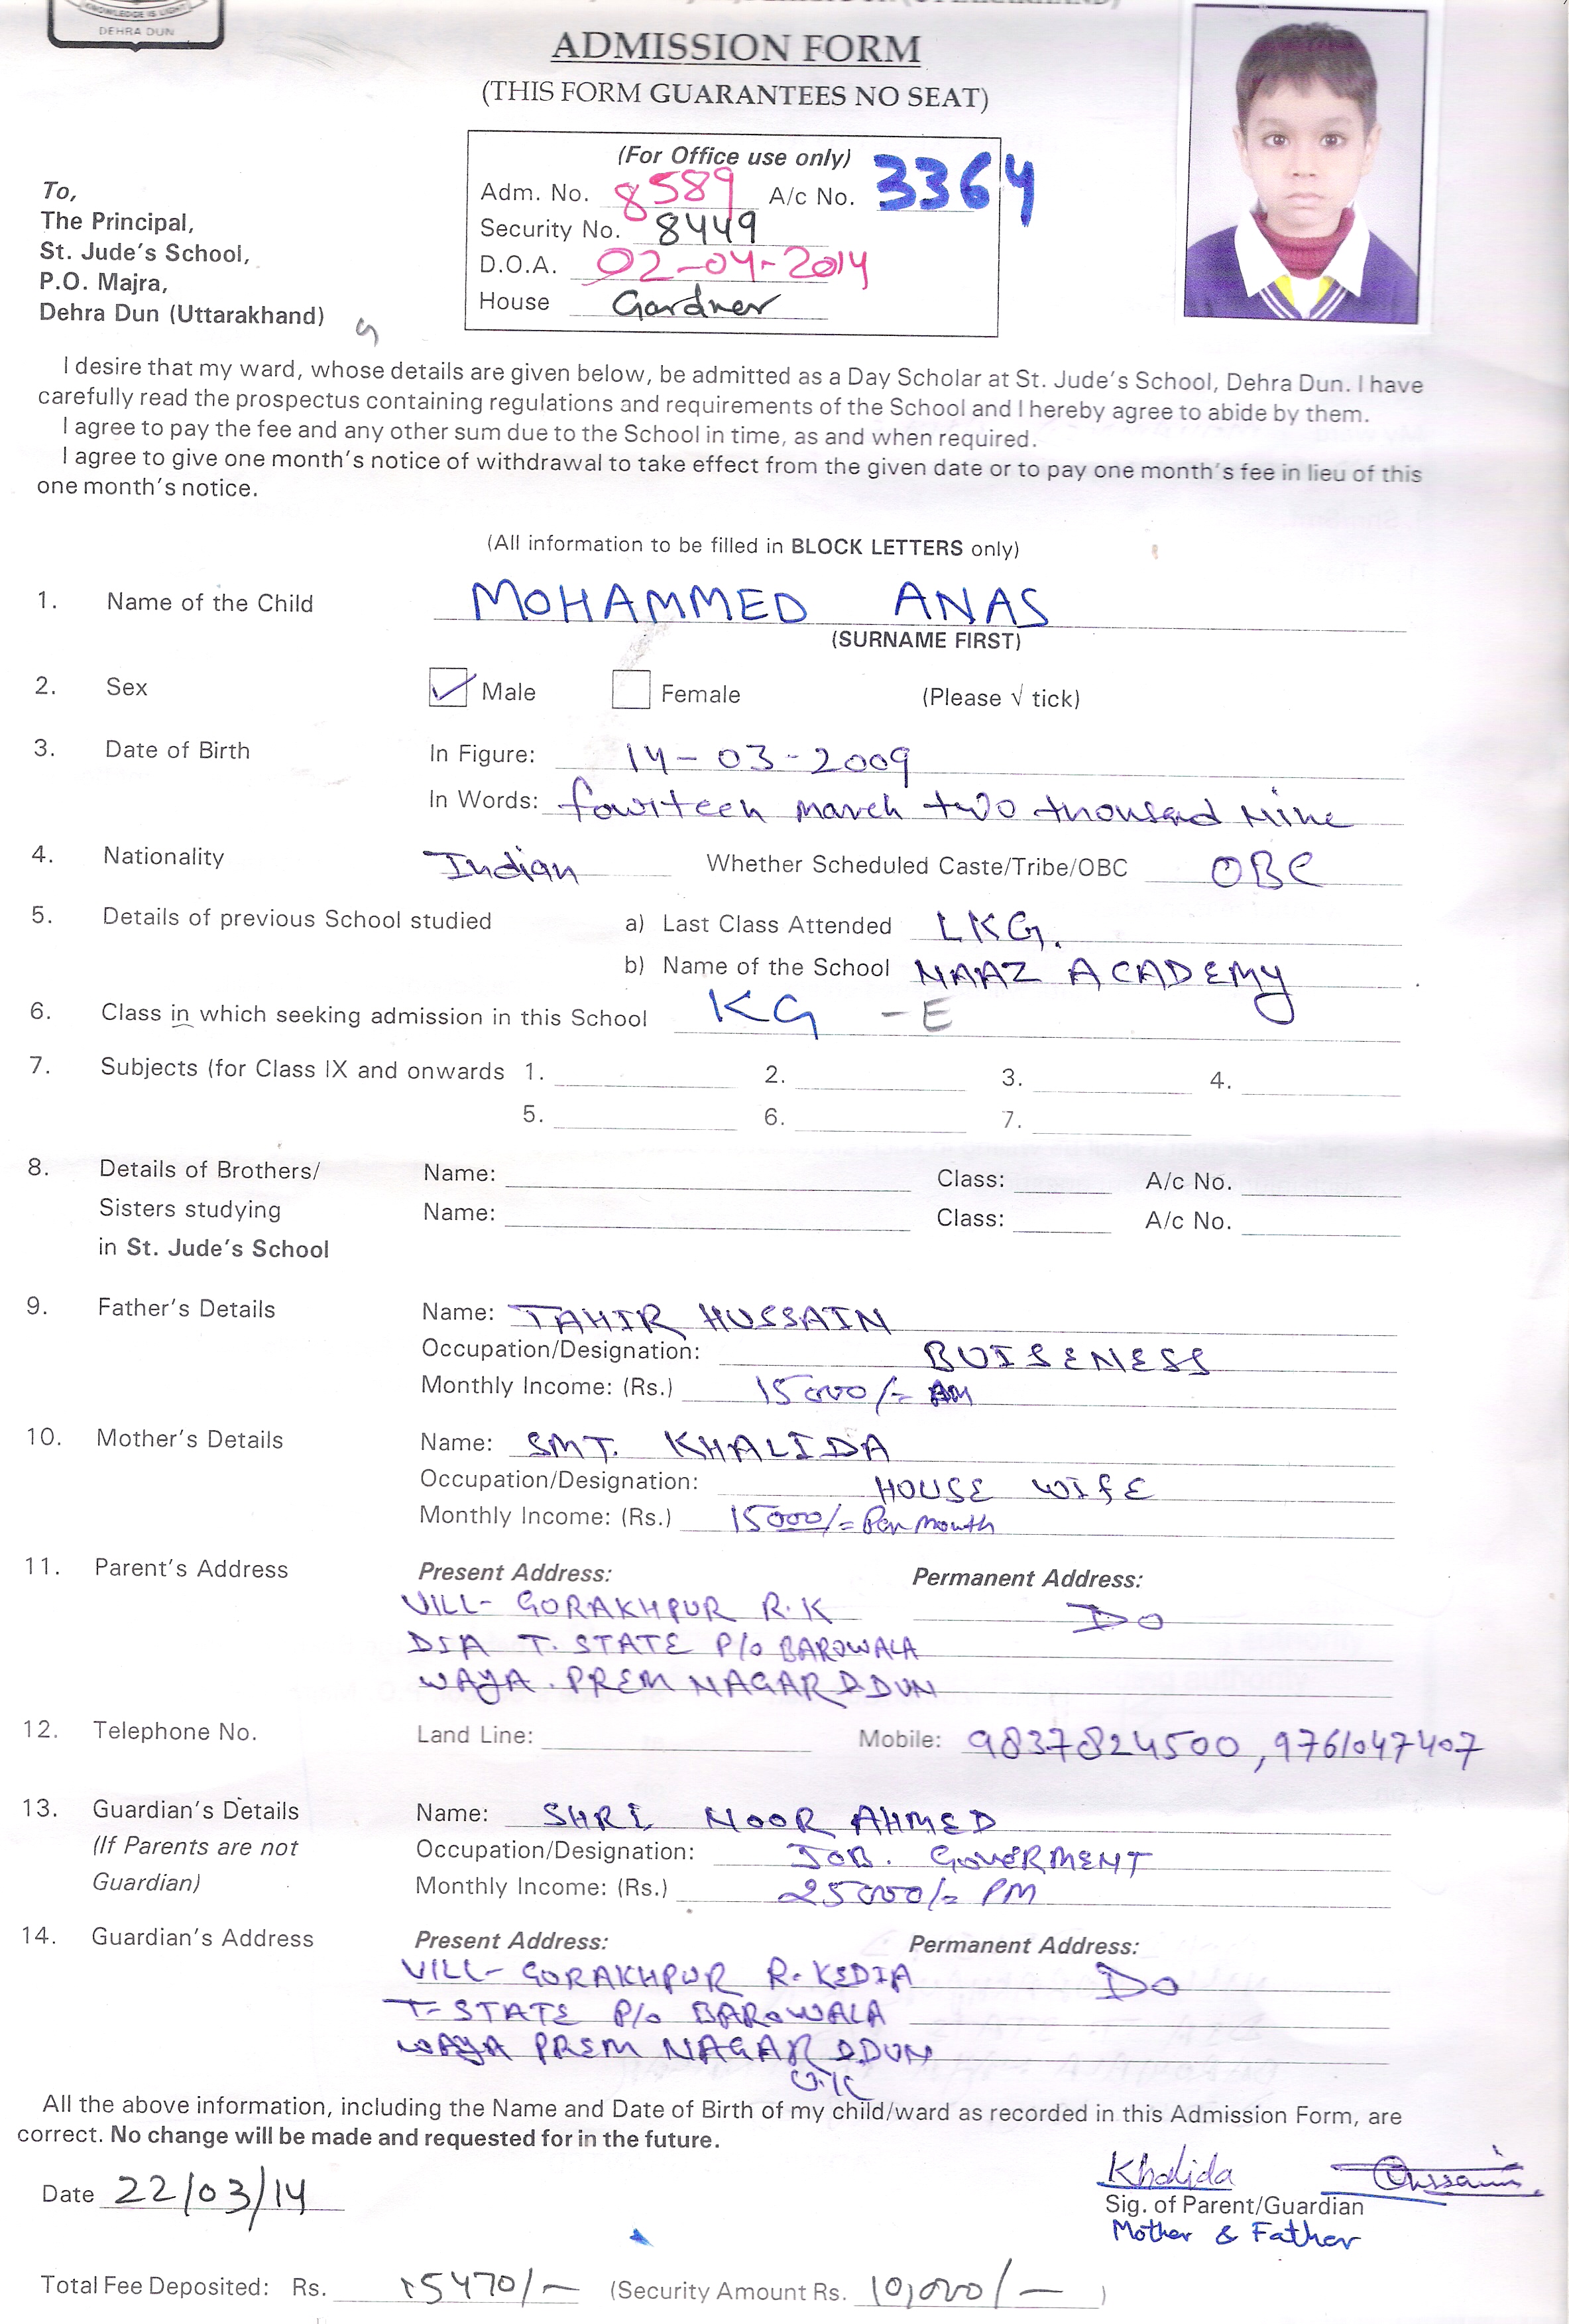 KNOWLEDGE IS LIGHT
DEHRA DUN
ADMISSION FORM
(THIS FORM GUARANTEES NO SEAT)
(For Office use only)
Adm. No. 8589 A/c No. 3364
Security No. 8449
D.O.A. 02-04-2014
House Gardner
To,
The Principal,
St. Jude's School,
P.O. Majra,
Dehra Dun (Uttarakhand)
I desire that my ward, whose details are given below, be admitted as a Day Scholar at St. Jude's School, Dehra Dun. I have
carefully read the prospectus containing regulations and requirements of the School and I hereby agree to abide by them.
I agree to pay the fee and any other sum due to the School in time, as and when required.
I agree to give one month's notice of withdrawal to take effect from the given date or to pay one month's fee in lieu of this
one month's notice.
(All information to be filled in BLOCK LETTERS only)
1. Name of the Child MOHAMMED ANAS
(SURNAME FIRST)
2. Sex Male Female (Please √ tick)
3. Date of Birth In Figure: 14-03-2009
In Words: fowrteen march two thousand Nine
4. Nationality Indian Whether Scheduled Caste/Tribe/OBC OBC
5. Details of previous School studied a) Last Class Attended LKG.
b) Name of the School NAAZ ACADEMY
6. Class in which seeking admission in this School KG -E
7. Subjects (for Class IX and onwards 1. 2. 3. 4.
5. 6. 7.
8. Details of Brothers/ Name: Class: A/c No.
Sisters studying Name: Class: A/c No.
in St. Jude's School
9. Father's Details Name: TAHIR HUSSAIN
Occupation/Designation: BUISENESS
Monthly Income: (Rs.) 15000/=
10. Mother's Details Name: SMT. KHALIDA
Occupation/Designation: HOUSE WIFE
Monthly Income: (Rs.) 15000/= Per month
11. Parent's Address Present Address: Permanent Address:
VILL- GORAKHPUR R.K Do
DIA T. STATE P/o BAROWALA
WAYA. PREM NAGAR DDUN
12. Telephone No. Land Line: Mobile: 9837824500, 9761047407
13. Guardian's Details Name: SHRI NOOR AHMED
(If Parents are not Occupation/Designation: JOB. GOVERMENT
Guardian) Monthly Income: (Rs.) 25000/= PM
14. Guardian's Address Present Address: Permanent Address:
VILL- GORAKHPUR R. KEDIA Do
T- STATE P/o BAROWALA
WAYA PREM NAGAR DDUN
U.K
All the above information, including the Name and Date of Birth of my child/ward as recorded in this Admission Form, are
correct. No change will be made and requested for in the future.
Date 22/03/14
Khalida Hussain
Sig. of Parent/Guardian
Mother & Father
Total Fee Deposited: Rs. 15470/- (Security Amount Rs. 10,000/- )